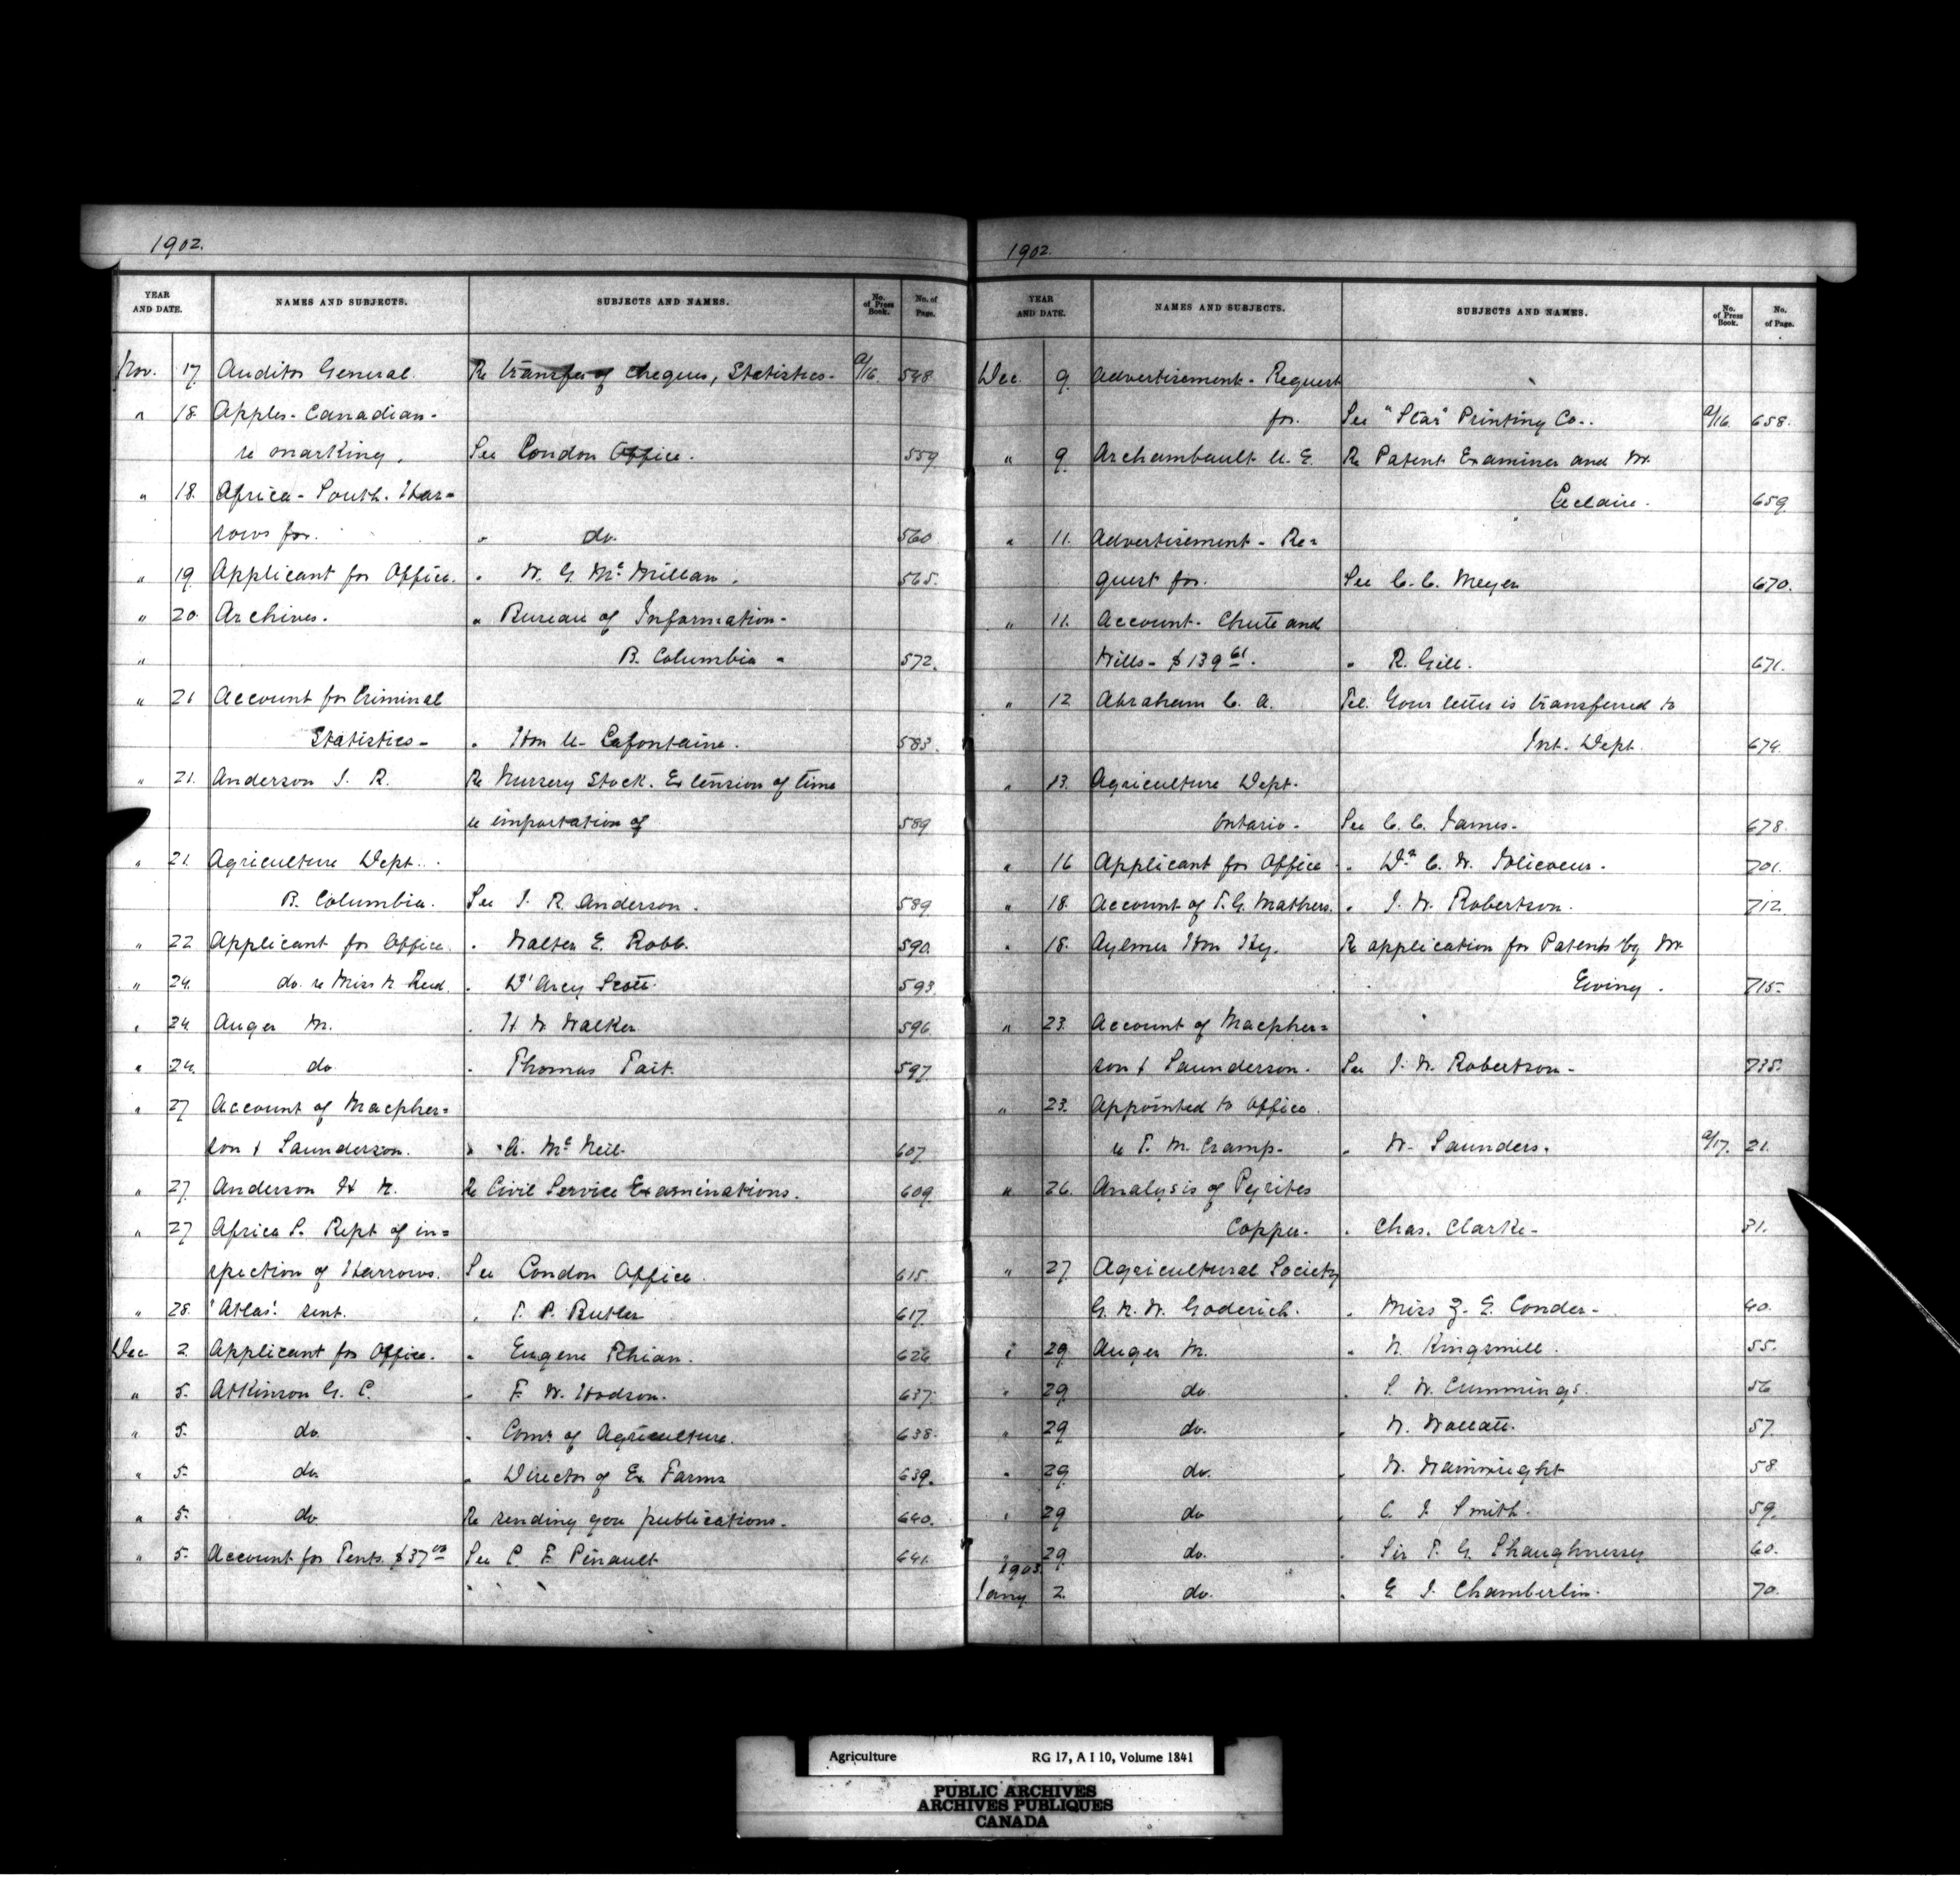 1902.
YEAR AND DATE. NAMES AND SUBJECTS. SUBJECTS AND NAMES. No. of Press Book. No. of Page.
Nov. 17 Auditor General. Re transfer of cheques, Statistics- a/16. 548
" 18. Apples- Canadian-
re marking, See London Office. 559
" 18. Africa- South. Har=
rows for. " do. 560
" 19. Applicant for Office. " W. G. McMillan. 565.
" 20. Archives. " Bureau of Information-
" B. Columbia " 572.
" 21 Account for Criminal
Statistics- " Hon U- Lafontaine. 583.
" 21. Anderson J. R. Re Nursery Stock. Extension of time
re importation of 589
" 21. Agriculture Dept.
B. Columbia. See J. R. Anderson. 589
" 22 Applicant for Office. " Walter E. Robb. 590.
" 24. do. re Miss M Reid. " D'Arcy Scott. 593.
" 24 Auger M. " H. W Walker 596.
" 24. do " Thomas Tait. 597.
" 27 Account of Macpher=
son & Saunderson. " A. McNeil- 607.
" 27. Anderson H. Re Civil Service Examinations. 609.
" 27 Africa S. Rept of in=
spection of Harrows. See London Office. 615.
" 28. 'Atlas'. sent. " T. P. Butler 617.
Dec 2. Applicant for Office. " Eugene Rhian. 626
" 5. Atkinson G. C. " F. W. Hodson. 637.
" 5. do. " Comr of Agriculture. 638.
" 5. do. " Director of Ex Farms 639.
" 5. do Re sending you publications. 640.
" 5. Account for Tents. $37 00 See P. F. Pinault 641.
1902.
YEAR AND DATE. NAMES AND SUBJECTS. SUBJECTS AND NAMES. No. of Press Book. No. of Page.
Dec. 9. Advertisement- Request
for. See "Star" Printing Co.. a/16. 658.
" 9. Archambault U. E. Re Patent Examiner and Mr.
Leclaire. 659
" 11. Advertisement- Re=
quest for. See C. C. Meyer 670.
" 11. Account- Chute and
Mills- $139 61. " R. Gill. 671.
" 12 Abraham C. A. Tel. Your letter is transferred to
Int. Dept. 674.
" 13. Agriculture Dept-
Ontario- See C. C. James- 678.
" 16 Applicant for Office " Dr C. W. Policoeur- 701.
" 18. Account of T. G. Mathers. " J. W. Robertson. 712.
" 18. Aylmer Hon Hy. Re application for Patents by Mr
Ewing. 715-
" 23. Account of Macpher=
son & Saunderson. See J. W. Robertson- 735.
" 23. Appointed to Office.
re T. M. Cramp- " W. Saunders. a/17. 21.
" 26. Analysis of Pyrites
Copper- " Chas. Clarke- 31.
" 27. Agricultural Society
G. N. W. Goderich. " Miss Z. E. Conder- 40.
" 29. Auger M. " N. Kingsmill. 55.
" 29. do. " S. W. Cummings. 56
" 29 do. " W. Wallatt. 57.
" 29. do. " W. Wainwright 58
" 29 do " C. J. Smith. 59.
" 29. do. " Sir T. G. Shaughnessy 60.
1903.
Jany 2. do. " E J. Chamberlin- 70.
Agriculture RG 17, A I 10, Volume 1841
PUBLIC ARCHIVES
ARCHIVES PUBLIQUES
CANADA